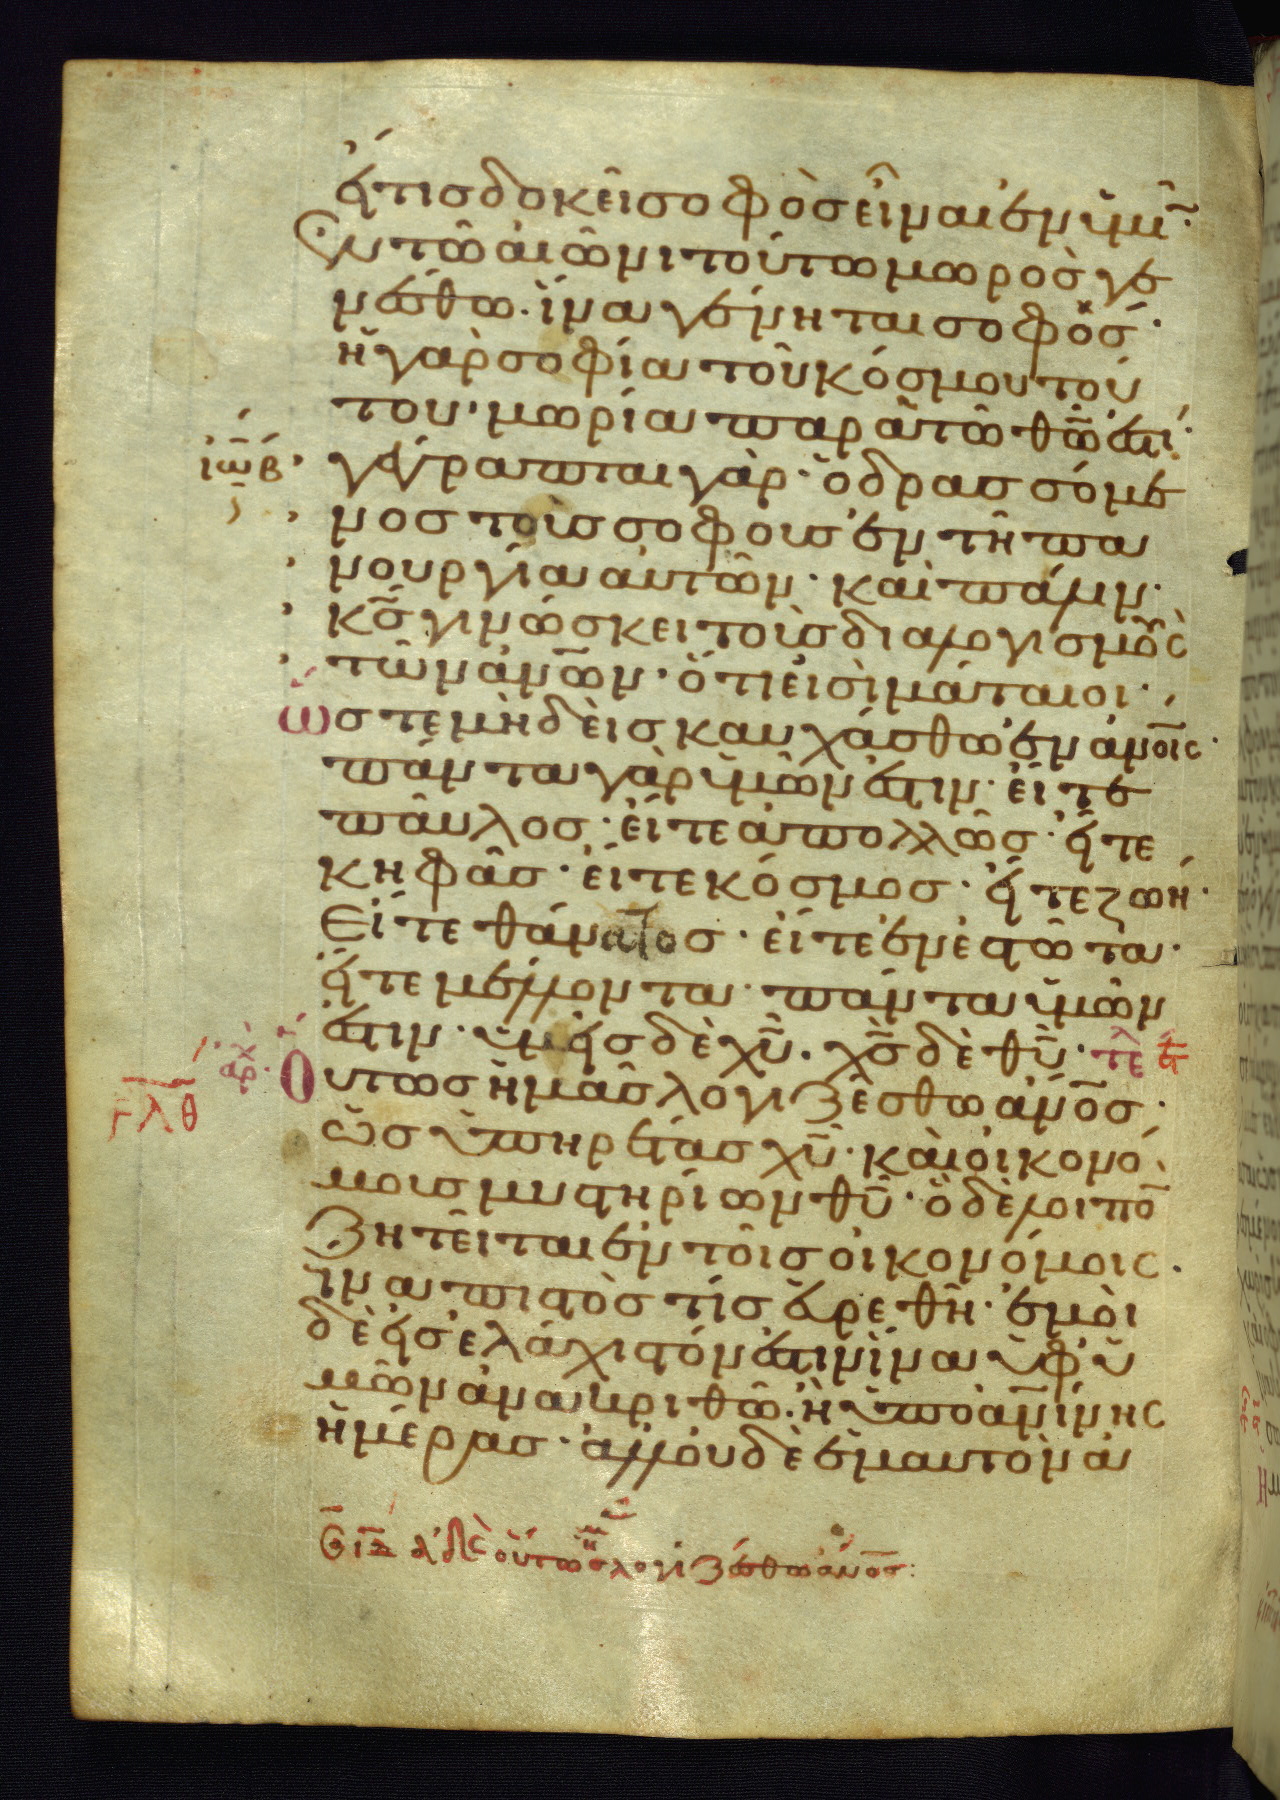 εἴ τις δοκεῖ σοφὸς εἶναι ἐν ὑμῖ̃·
Ἐν τῶ αἰῶνι τούτω μωρὸς γε
νέσθω· ἵνα γένηται σοφός·
ἡ γὰρ σοφία τοῦ κόσμου τού
του· μωρία παρὰ τῶ θ̅ω̅ ἐστί·
ἰώβ· γέγραπται γάρ· ὁ δρασσόμε
νος τοὺς σοφοὺς ἐν τῆ πα
νουργία αὐτῶν· καὶ πάλιν·
κ̅ς̅ γινώσκει τοὺς διαλογισμοὺς
τῶν ἀν̅ω̅ν· ὅτι εἰσὶ μάταιοι·
Ὥστε μηδεὶς καυχάσθω ἐν ἀν̅ο̅ις·
πάντα γὰρ ὑμῶν ἐστιν· εἴτε
παῦλος· εἴτε ἀπολλῶς· εἴτε
κηφᾶς· εἴτε κόσμος· εἴτε ζωή·
Εἴτε θάνατος· εἴτε ἐνεστῶτα·
εἴτε μέλλοντα· πάντα ὑμῶν
ἐστιν· ὑμεῖς δὲ χ̅υ̅· χ̅ς̅ δὲ θ̅υ̅· τε
αρχ
ρ̅λ̅θ̅
Οὕτως ἡμᾶς λογιζέσθω ἄν̅ο̅ς·
ὡς ὑπηρέτας χ̅υ̅· καὶ οἰκονό
μους μυστηρίων θ̅υ̅· ὃ δὲ λοιπὸ̅
ζητεῖται ἐν τοῖς οἰκονόμοις·
ἵνα πιστός τις εὑρεθῆ· ἐμοὶ
δὲ εἰς ἐλάχιστόν ἐστιν ἵνα ὑφ' ὑ
μῶν ἀνακριθῶ· ἢ ὑπὸ ἀν̅ίνης
ἡμέρας· ἀλλ' οὐδὲ ἐμαυτὸν ἀ
ἀδε οὕτως ἡμᾶς λογιζέσθω ἄν̅ο̅ς: